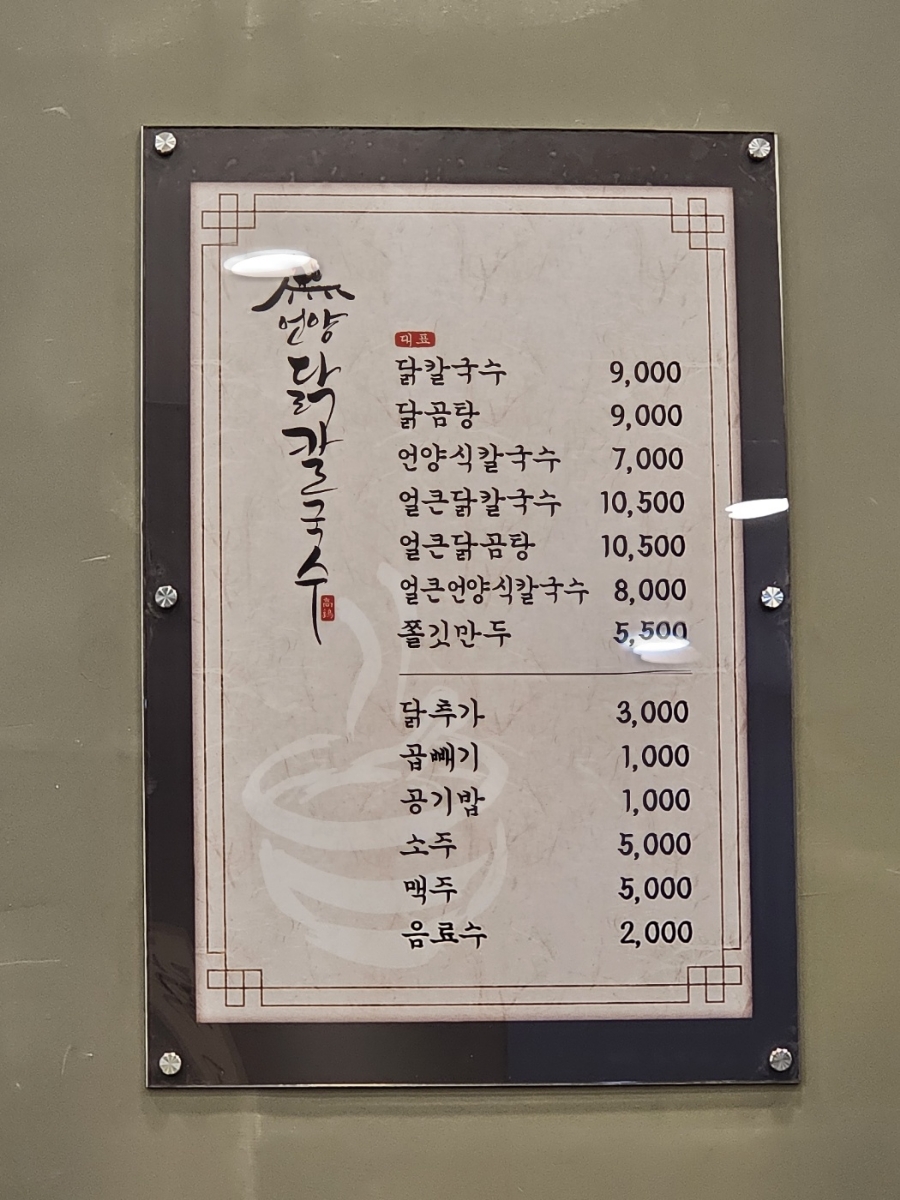 언양
닭칼국수
대표
닭칼국수 9,000
닭곰탕 9,000
언양식칼국수 7,000
얼큰닭칼국수 10,500
얼큰닭곰탕 10,500
얼큰언양식칼국수 8,000
쫄깃만두 5,500
닭추가 3,000
곱빼기 1,000
공기밥 1,000
소주 5,000
맥주 5,000
음료수 2,000